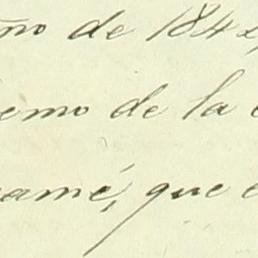 ño de 1842,
emo de la
amé, que e